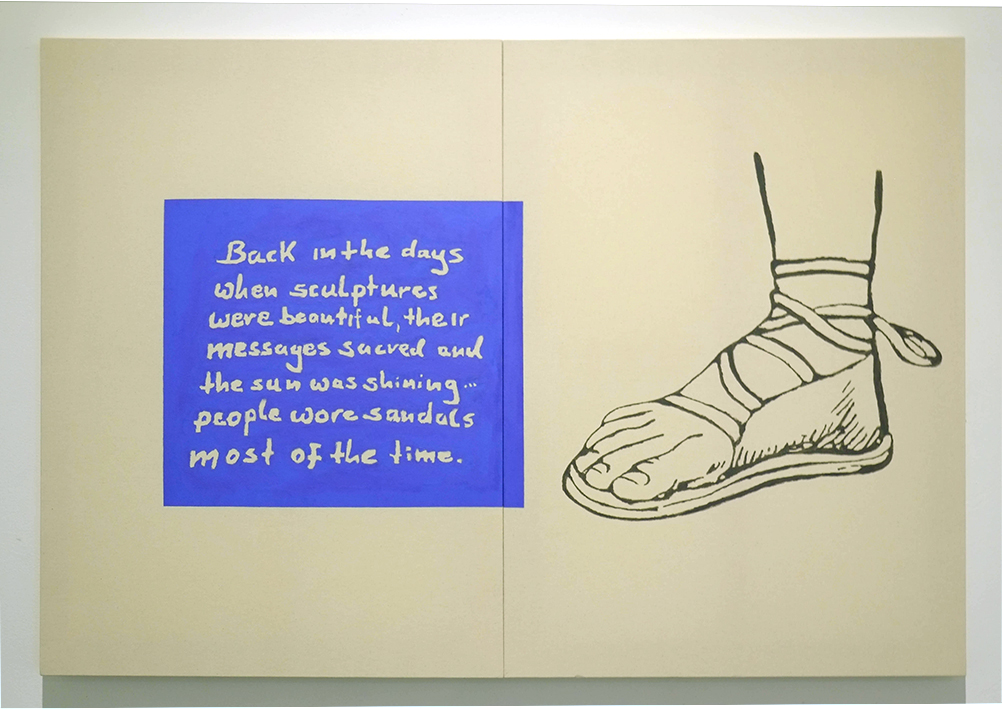 Back in the days
when sculptures
were beautiful, their
messages sacred and
the sun was shining...
people wore sandals
most of the time.